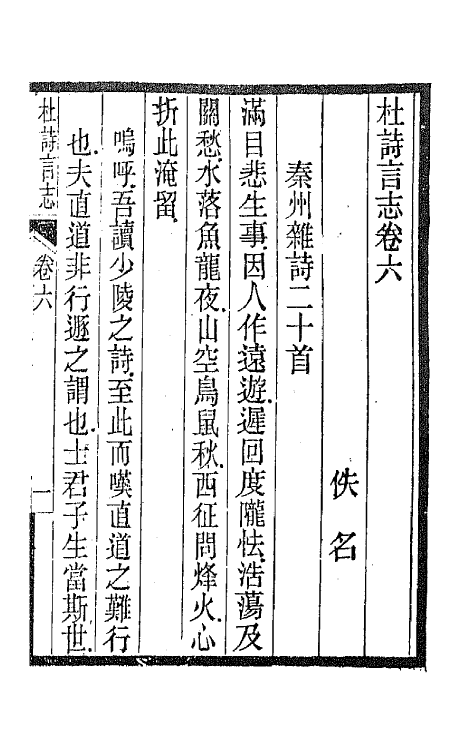 杜詩言志卷六
佚名
秦州雜詩二十首
滿目悲生事.因人作遠遊.遲回度隴怯.浩蕩及
關愁.水落魚龍夜.山空鳥鼠秋.西征問烽火.心
折此淹留.
嗚呼.吾讀少陵之詩.至此而嘆直道之難行
也.夫直道非行遯之謂也.士君子生當斯世.
杜詩言志
卷六
一